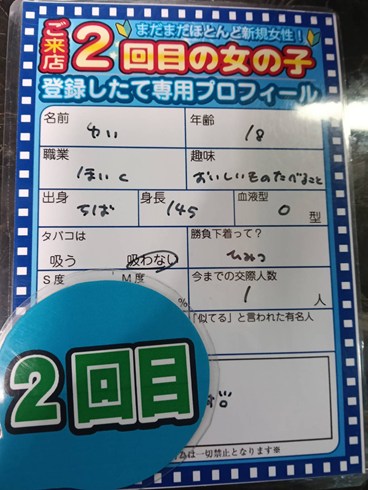 まだまだほとんど新規女性！
ご来店2回目の女の子
登録したて専用プロフィール
名前 ゆい 年齢 18
職業 ほいく 趣味 おいしいものたべること
出身 ちば 身長 145 血液型 O 型
タバコは 勝負下着って？
吸う 吸わない ひみつ
S度 M度 今までの交際人数
% 1 人
「似てる」と言われた有名人
2回目
は一切禁止となります※